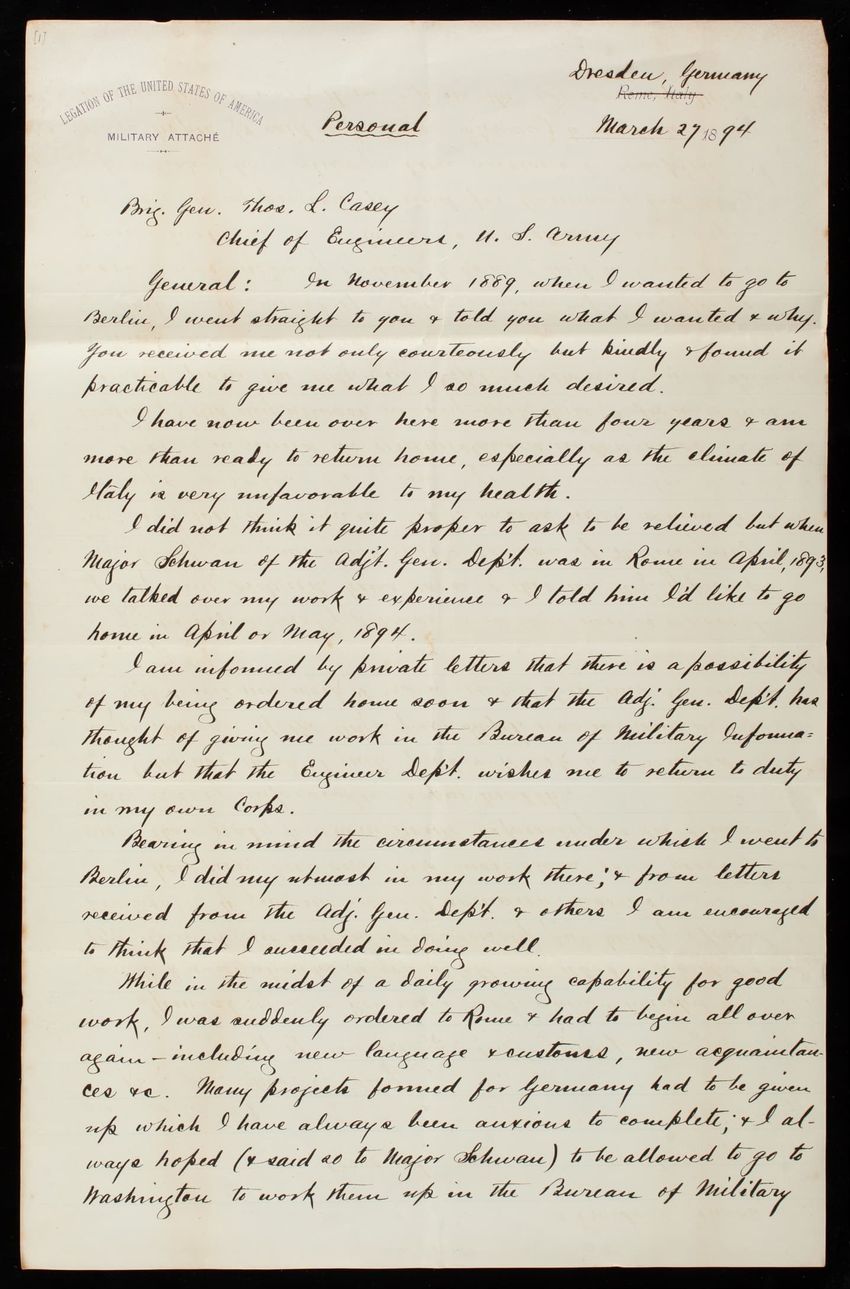 [1]
LEGATION OF THE UNITED STATES OF AMERICA
MILITARY ATTACHÉ
Personal
Dresden, Germany
Rome, Italy
March 27 1894
Brig. Gen. Thos. L. Casey
Chief of Engineers, U. S. Army
General: In November 1889, when I wanted to go to
Berlin, I went straight to you & told you what I wanted & why.
You received me not only courteously but kindly & found it
practicable to give me what I so much desired.
I have now been over here more than four years & am
more than ready to return home, especially as the climate of
Italy is very unfavorable to my health.
I did not think it quite proper to ask to be relieved but when
Major Schwan of the Adjt. Gen. Dep't. was in Rome in April, 1893,
we talked over my work & experience & I told him I'd like to go
home in April or May, 1894.
I am informed by private letters that there is a possibility
of my being ordered home soon & that the Adj. Gen. Dep't. has
thought of giving me work in the Bureau of Military Informa=
tion but that the Engineer Dep't. wishes me to return to duty
in my own Corps.
Bearing in mind the circumstances under which I went to
Berlin, I did my utmost in my work there; & from letters
received from the Adj. Gen. Dep't. & others I am encouraged
to think that I succeeded in doing well.
While in the midst of a daily growing capability for good
work, I was suddenly ordered to Rome & had to begin all over
again – including new language & customs, new acquaintan-
ces &c. Many projects formed for Germany had to be given
up which I have always been anxious to complete; & I al-
ways hoped (& said so to Major Schwan) to be allowed to go to
Washington to work them up in the Bureau of Military